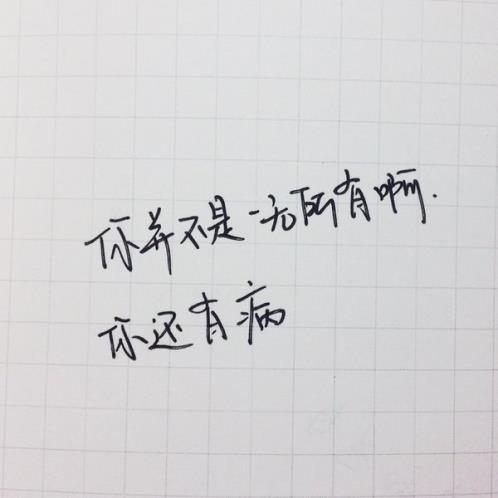 你并不是一无所有啊.
你还有病